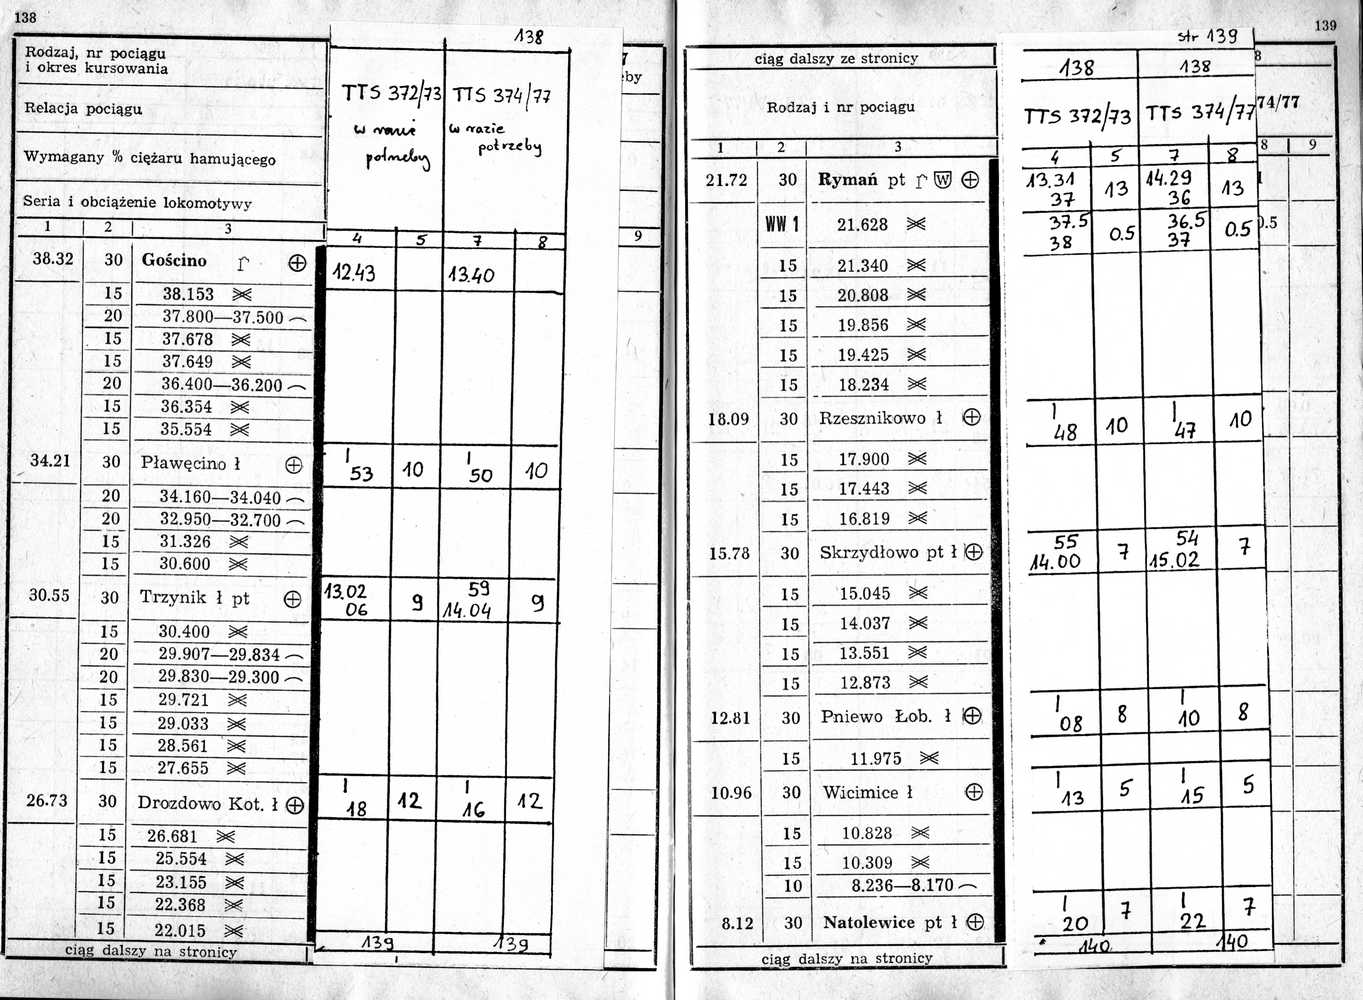 138
138
Rodzaj, nr pociągu
i okres kursowania
Relacja pociągu
Wymagany % ciężaru hamującego
Seria i obciążenie lokomotywy
TTS 372/73 TTS 374/77
w razie w razie
potrzeby potrzeby
by
1 2 3 4 5 7 8 9
38.32 30 Gościno 12.43 13.40
15 38.153
20 37.800—37.500
15 37.678
15 37.649
20 36.400—36.200
15 36.354
15 35.554
34.21 30 Pławęcino ł | 53 10 | 50 10
20 34.160—34.040
20 32.950—32.700
15 31.326
15 30.600
30.55 30 Trzynik ł pt 13.02 06 9 59 14.04 9
15 30.400
20 29.907—29.834
20 29.830—29.300
15 29.721
15 29.033
15 28.561
15 27.655
26.73 30 Drozdowo Kot. ł | 18 12 | 16 12
15 26.681
15 25.554
15 23.155
15 22.368
15 22.015
ciąg dalszy na stronicy 139 139
139
str 139
ciąg dalszy ze stronicy 138 138 8
Rodzaj i nr pociągu TTS 372/73 TTS 374/77 74/77
1 2 3 4 5 7 8 8 9
21.72 30 Rymań pt W 13.31 37 13 14.29 36 13
WW 1 21.628 37.5 38 0.5 36.5 37 0.5 0.5
15 21.340
15 20.808
15 19.856
15 19.425
15 18.234
18.09 30 Rzesznikowo ł | 48 10 | 47 10
15 17.900
15 17.443
15 16.819
15.78 30 Skrzydłowo pt ł 55 14.00 7 54 15.02 7
15 15.045
15 14.037
15 13.551
15 12.873
12.81 30 Pniewo Łob. ł | 08 8 | 10 8
15 11.975
10.96 30 Wicimice ł | 13 5 | 15 5
15 10.828
15 10.309
10 8.236—8.170
8.12 30 Natolewice pt ł | 20 7 | 22 7
ciąg dalszy na stronicy 140 140